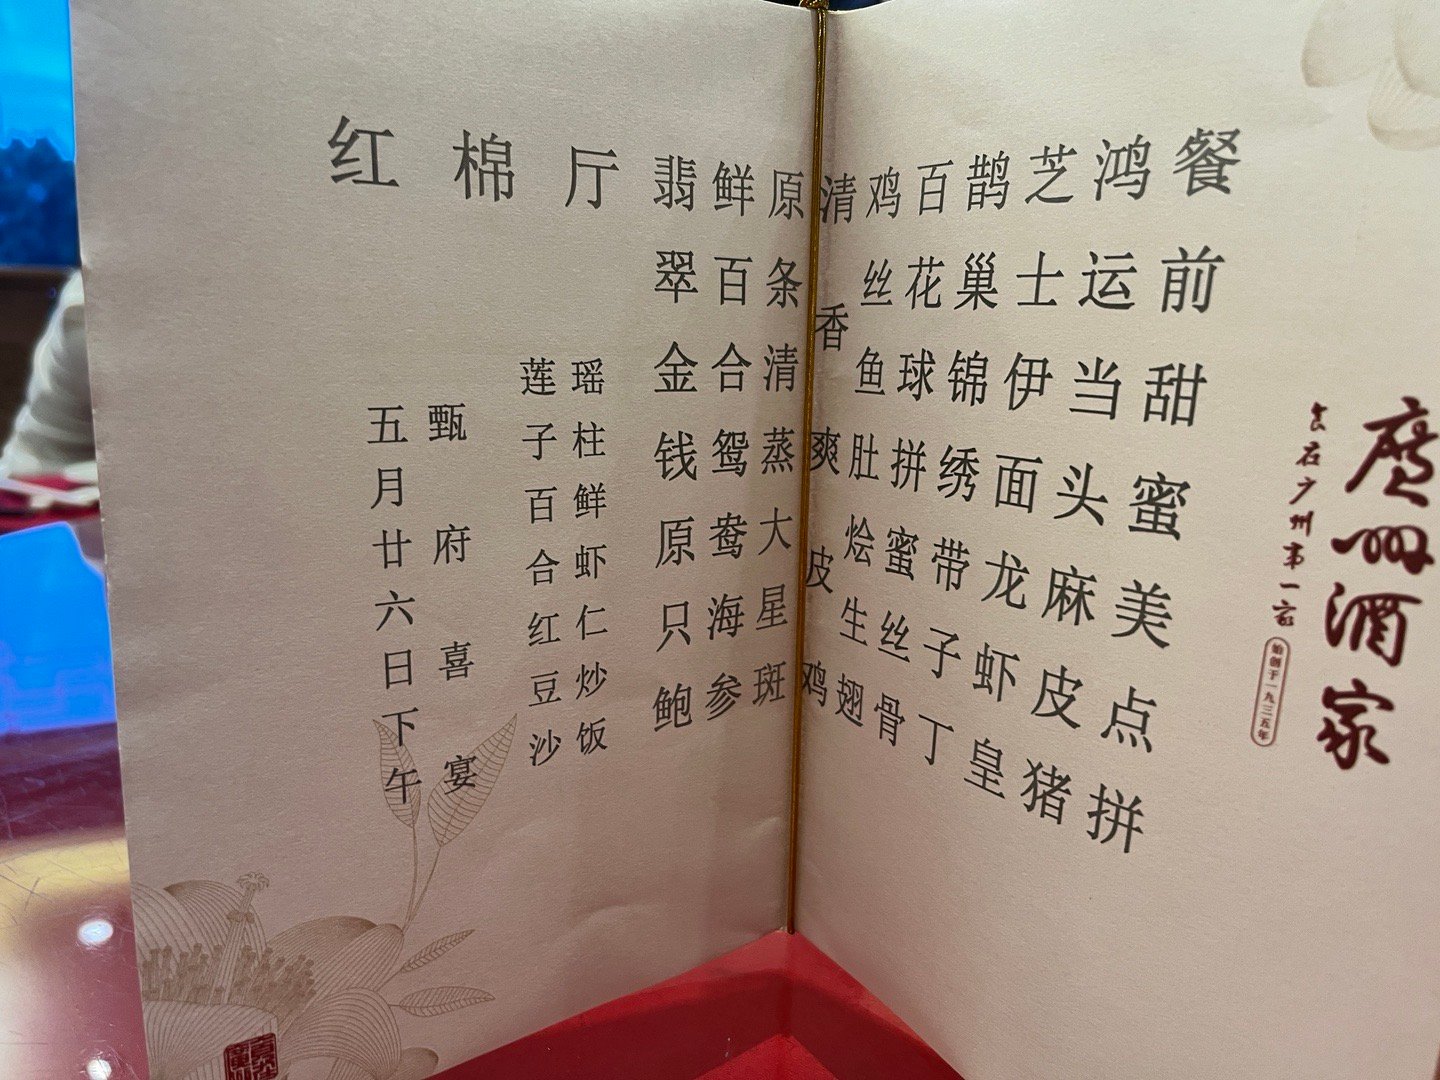 廣州酒家
食在广州第一家
始创于一九三五年
餐前甜蜜美点拼
鸿运当头麻皮猪
芝士伊面龙虾皇
鹊巢锦绣带子丁
百花球拼蜜丝骨
鸡丝鱼肚烩生翅
清香爽皮鸡
原条清蒸大星斑
鲜百合鸳鸯海参
翡翠金钱原只鲍
瑶柱鲜虾仁炒饭
莲子百合红豆沙
厅
棉
红
甄府喜宴
五月廿六日下午